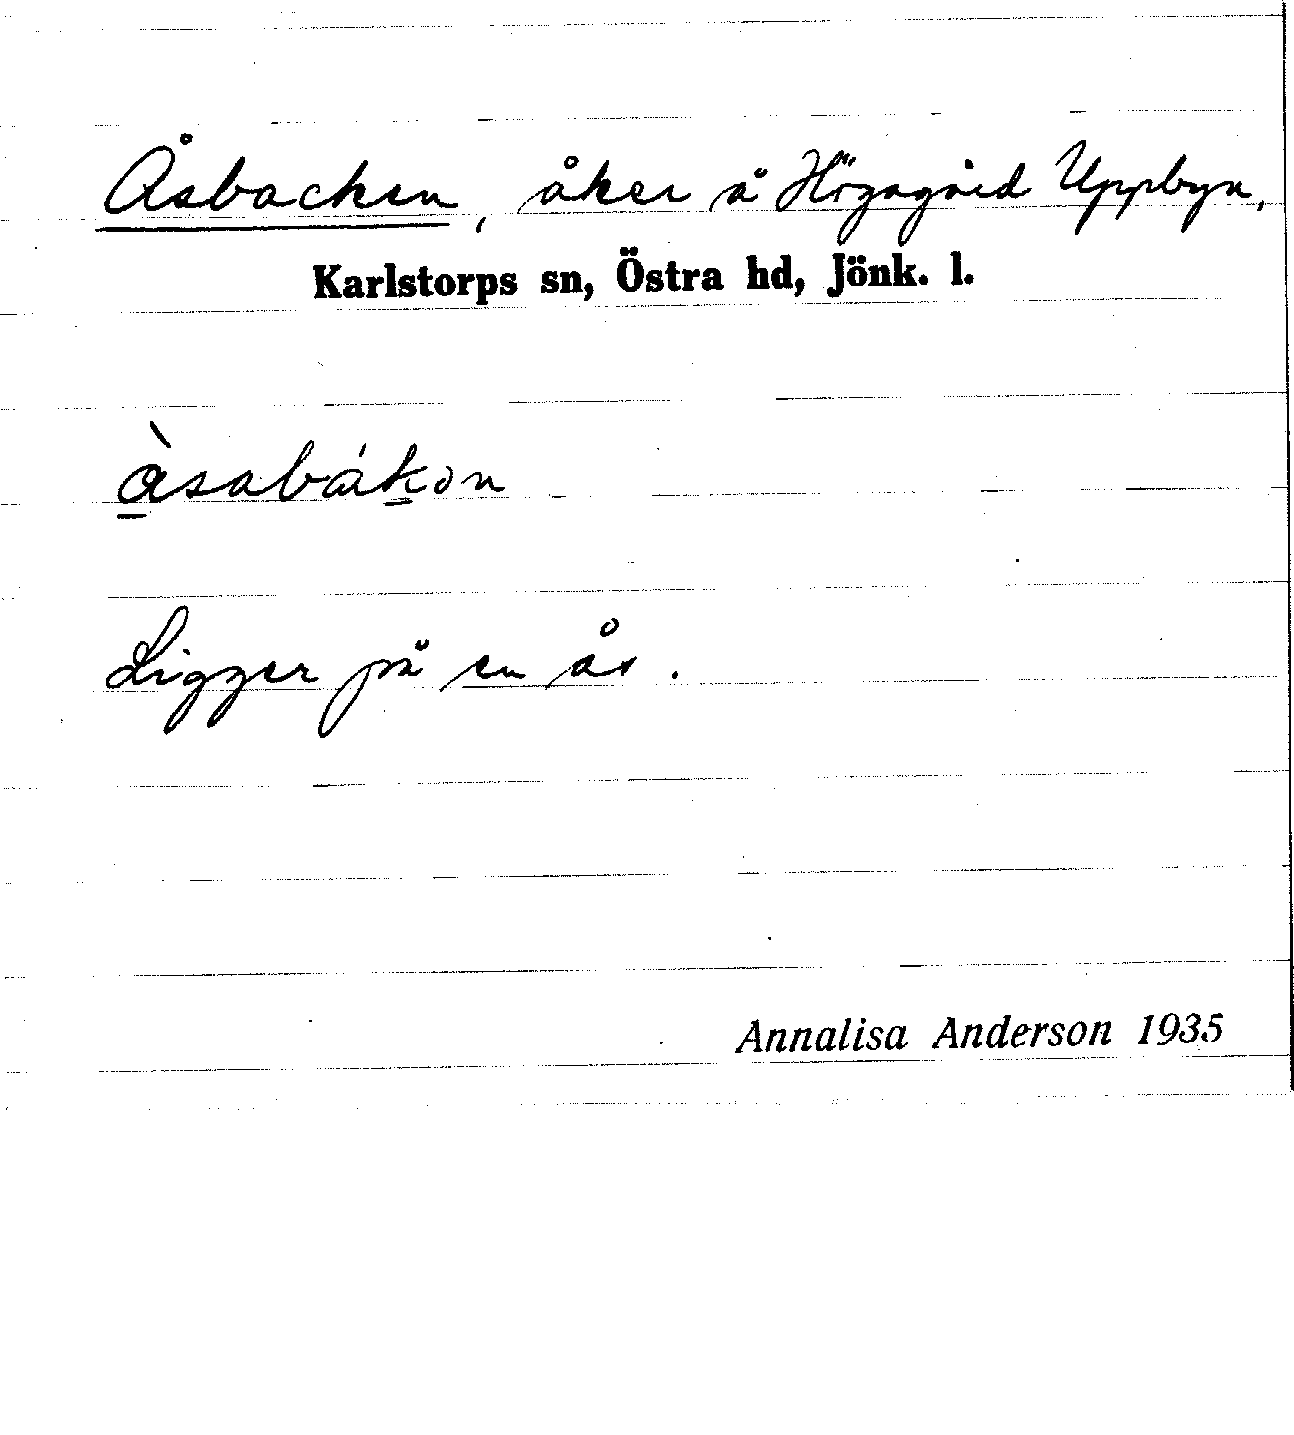 Åsbacken, åker å Högagärd Uppbyn,
Karlstorps sn, Östra hd, Jönk. l.
àsabákən
Ligger på en ås.
Annalisa Anderson 1935